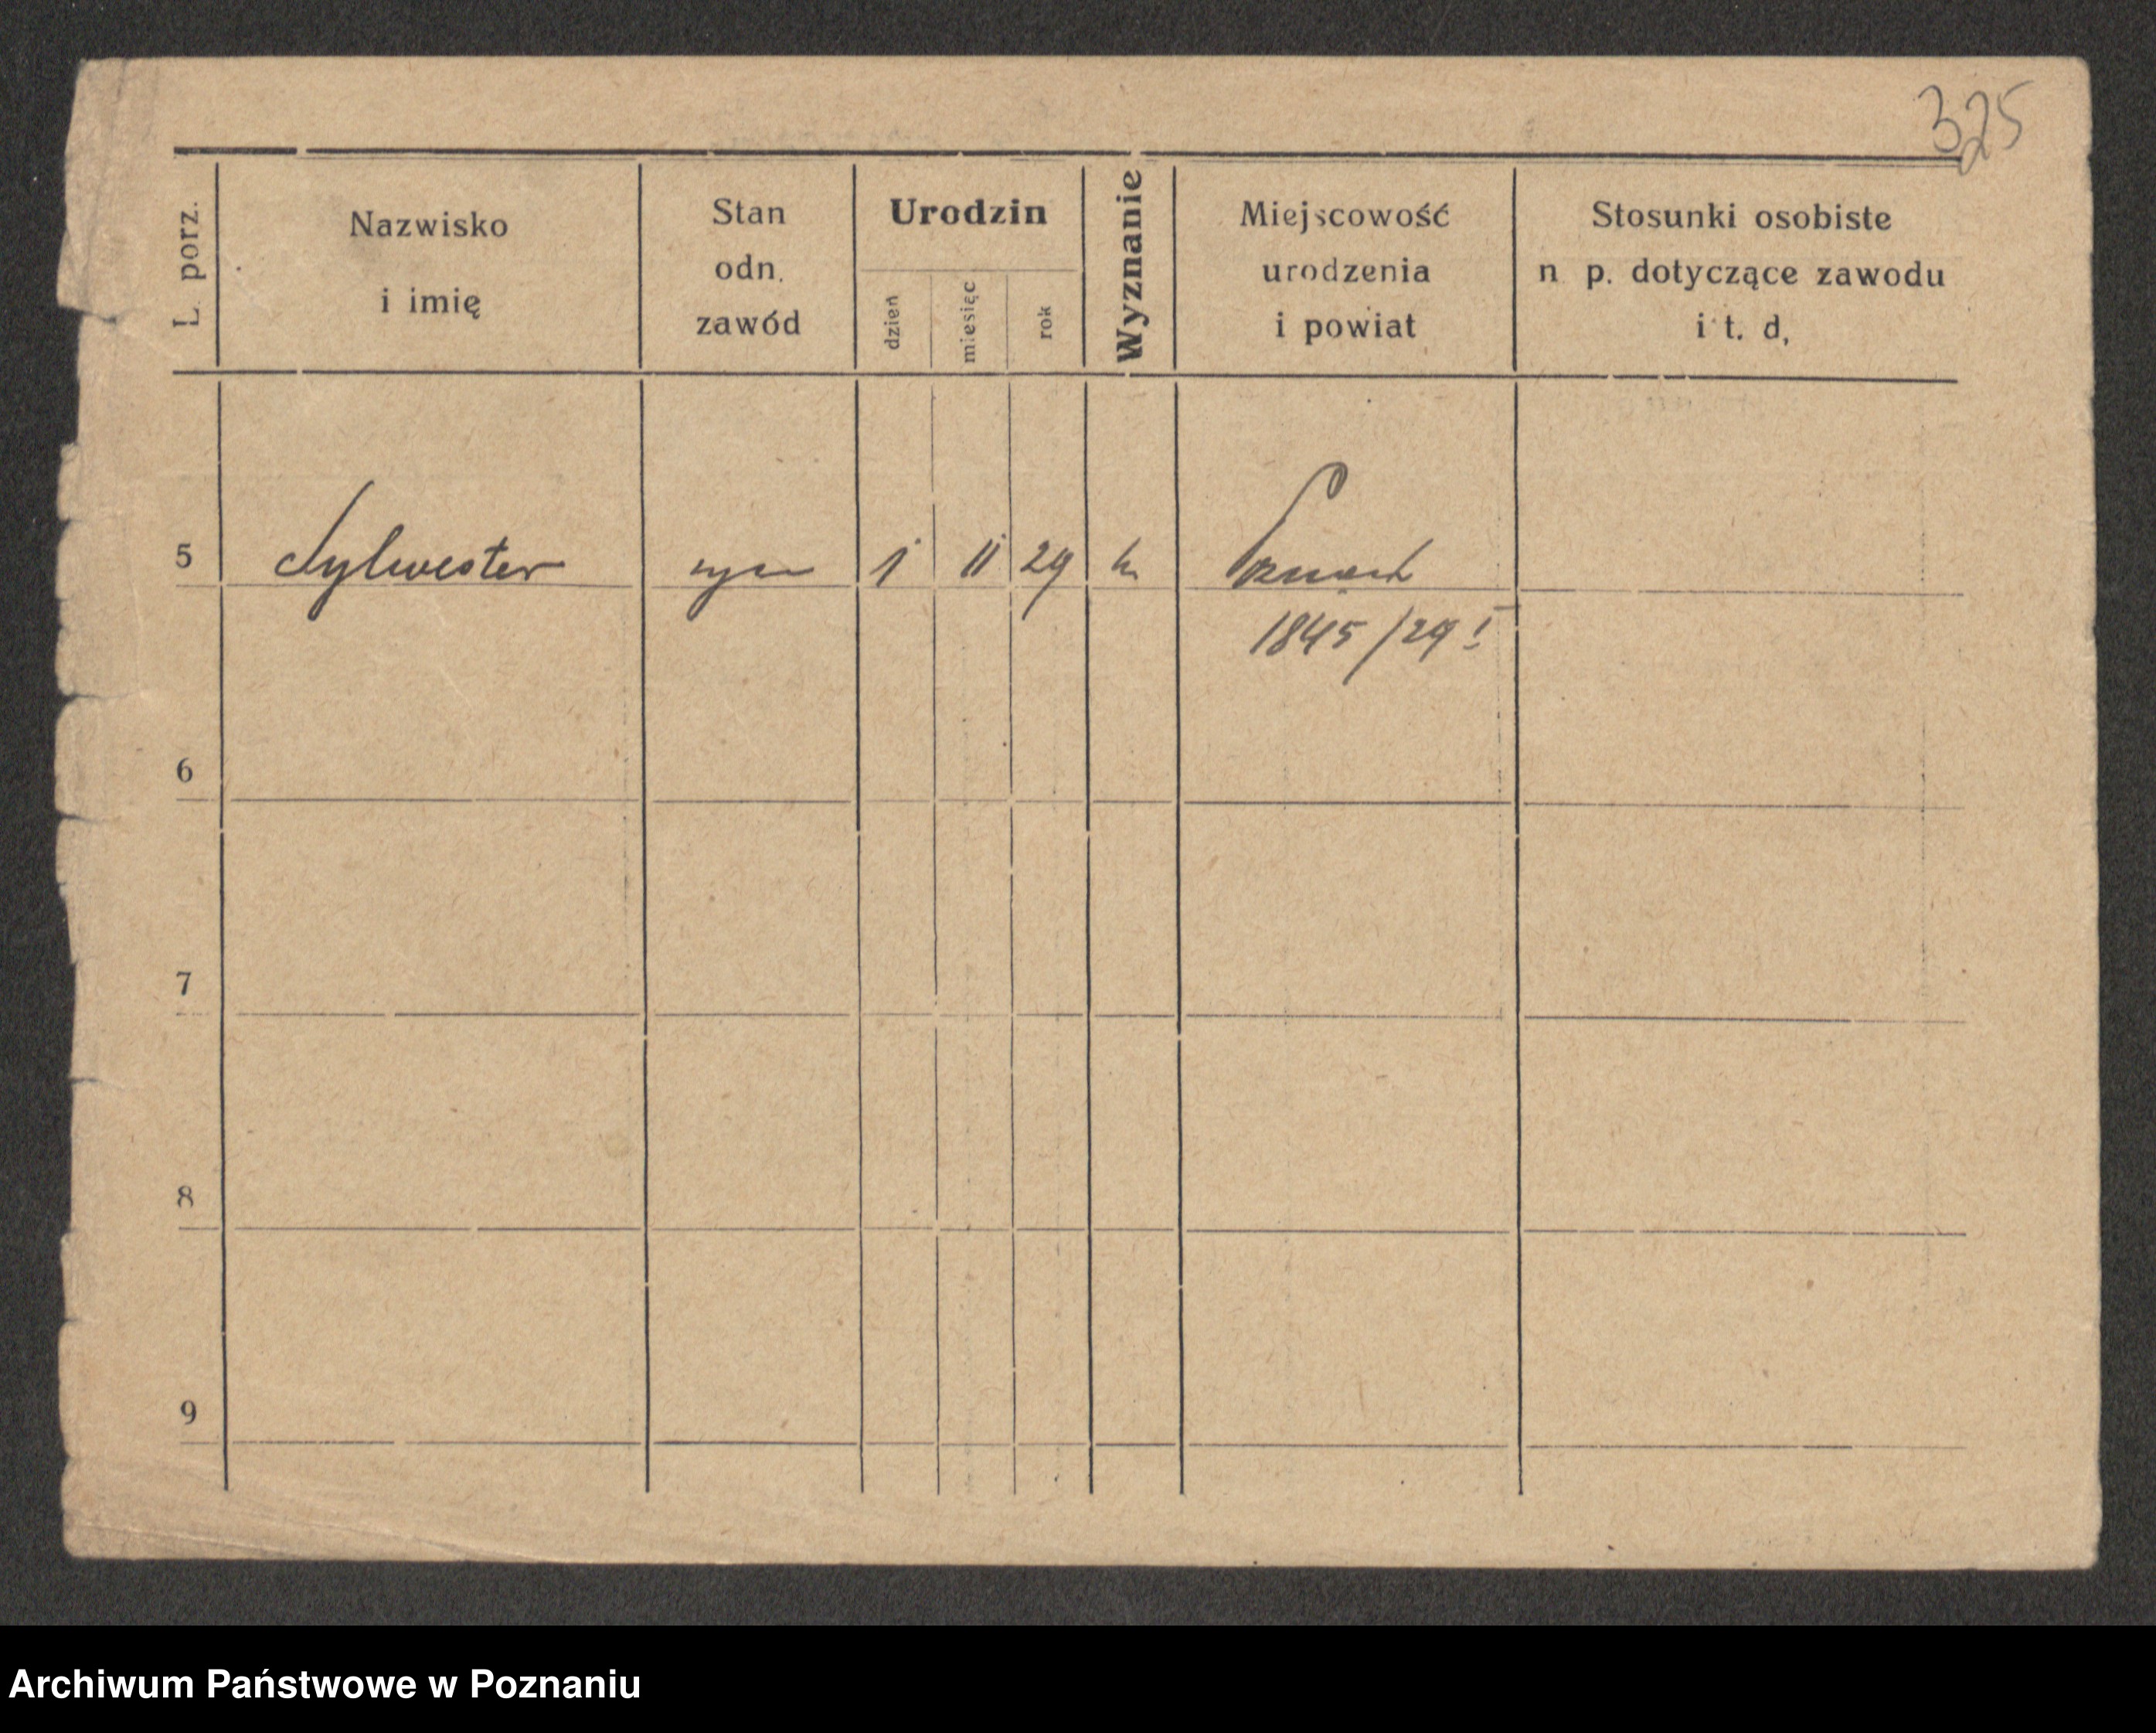 325
L. porz.
Nazwisko
i imię
Stan
odn.
zawód
Urodzin
dzień
miesięc
rok
Wyznanie
Miejscowość
urodzenia
i powiat
Stosunki osobiste
n p. dotyczące zawodu
i t. d,
5 Sylwester syn 1 11 29 k Poznań
1845/29 I
6
7
8
9
Archiwum Państwowe w Poznaniu